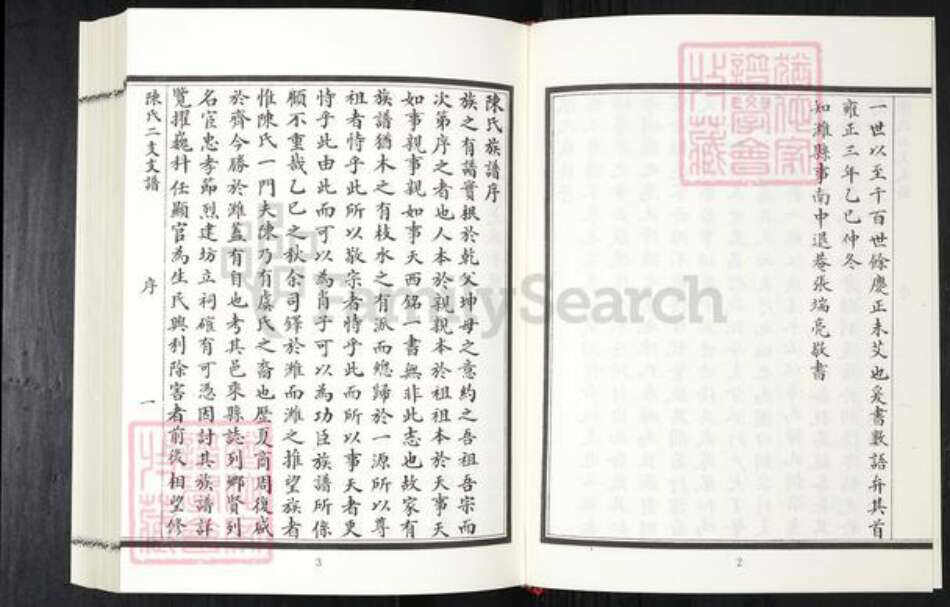 一世以至千百世餘慶正未艾也爰書數語弁其首
雍正三年乙巳仲冬
知濰縣事南中退菴張端亮敬書
2
陳氏族譜序
族之有譜實根於乾父坤母之意約之吾祖吾宗而
次第序之者也人本於親親本於祖祖本於天事天
如事親事親如事天西銘一書無非此志也故家有
族譜猶木之有枝水之有派而總歸於一源所以尊
祖者恃乎此所以敬宗者恃乎此而所以事天者更
恃乎此由此而可以為肖子可以為功臣族譜所係
顧不重哉乙巳之秋余司鐸於濰而濰之推望族者
惟陳氏一門夫陳乃有虞氏之裔也歷夏商周復盛
於齊今勝於濰蓋有自也考其邑乘縣誌列鄉賢列
名宦忠孝節烈建坊立祠確有可憑因討其族譜詳
覽擢巍科任顯官為生民興利除害者前後相望修
陳氏二支支譜
序
一
3
FamilySearch